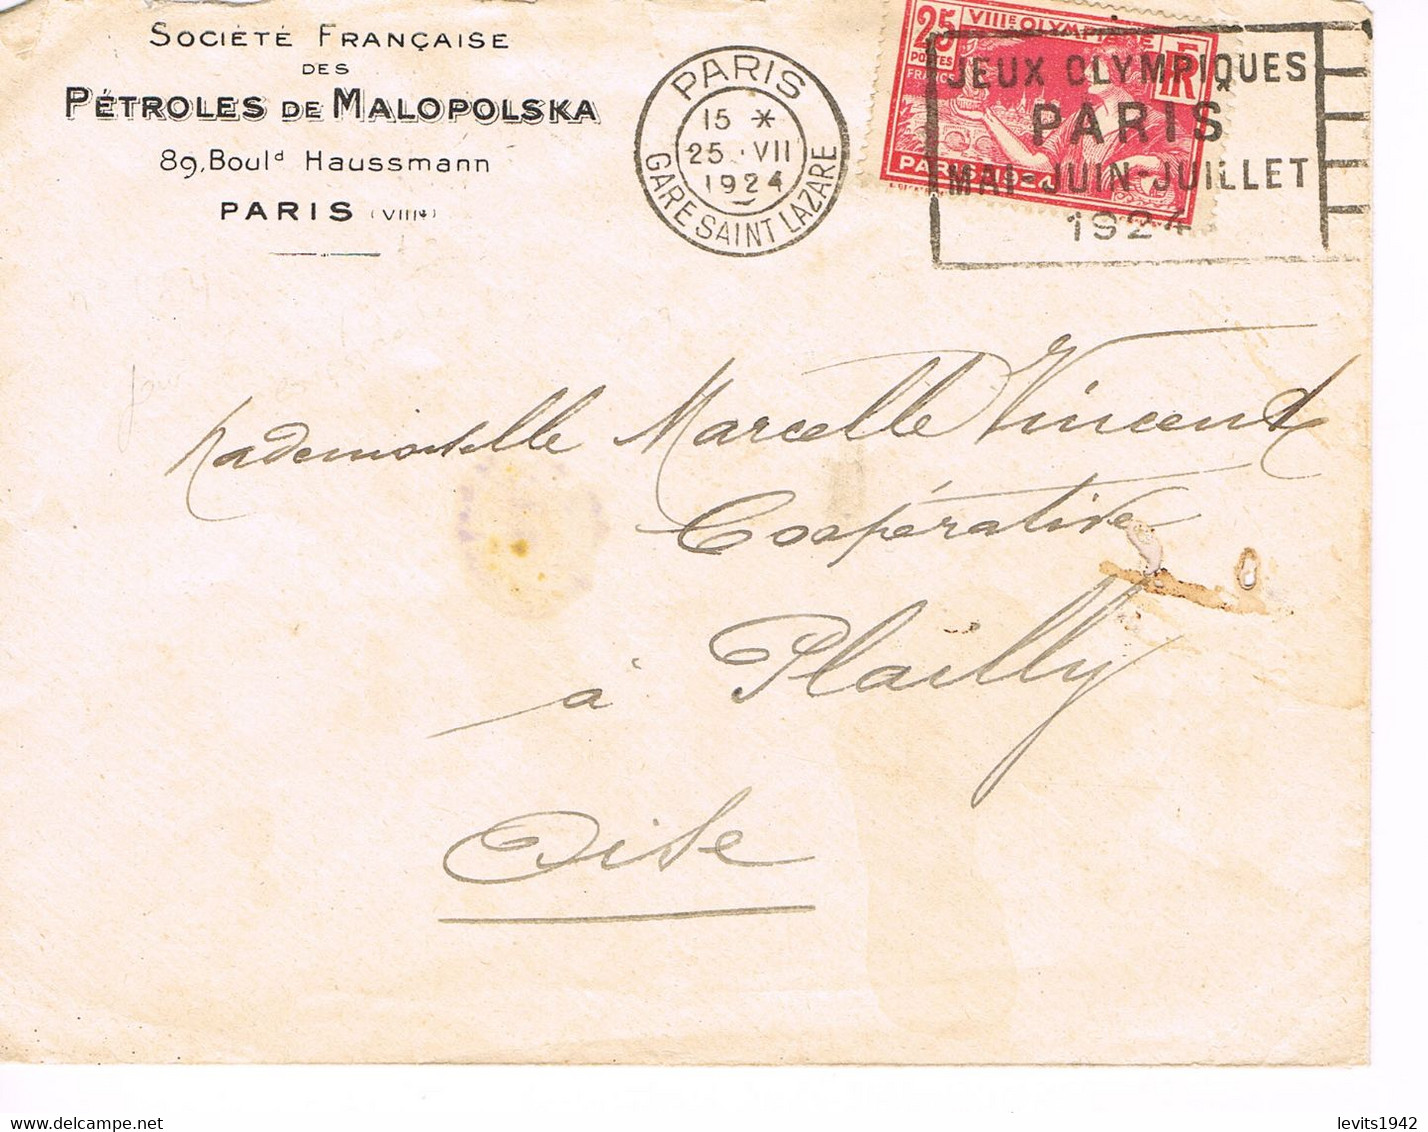 SOCIÉTÉ FRANÇAISE
DES
PÉTROLES DE MALOPOLSKA
89, Boulᵈ Haussmann
PARIS (VIIIᵉ)
PARIS
15 *
25 · VII
1924
GARE SAINT LAZARE
25 VIIIᴱ OLYMPIADE
POSTES
FRANCE
RF
PARIS 1924
JEUX OLYMPIQUES
PARIS
MAI-JUIN-JUILLET
1924
Mademoiselle Marcelle Vincent
Coopérative
à Plailly
Oise
levits1942